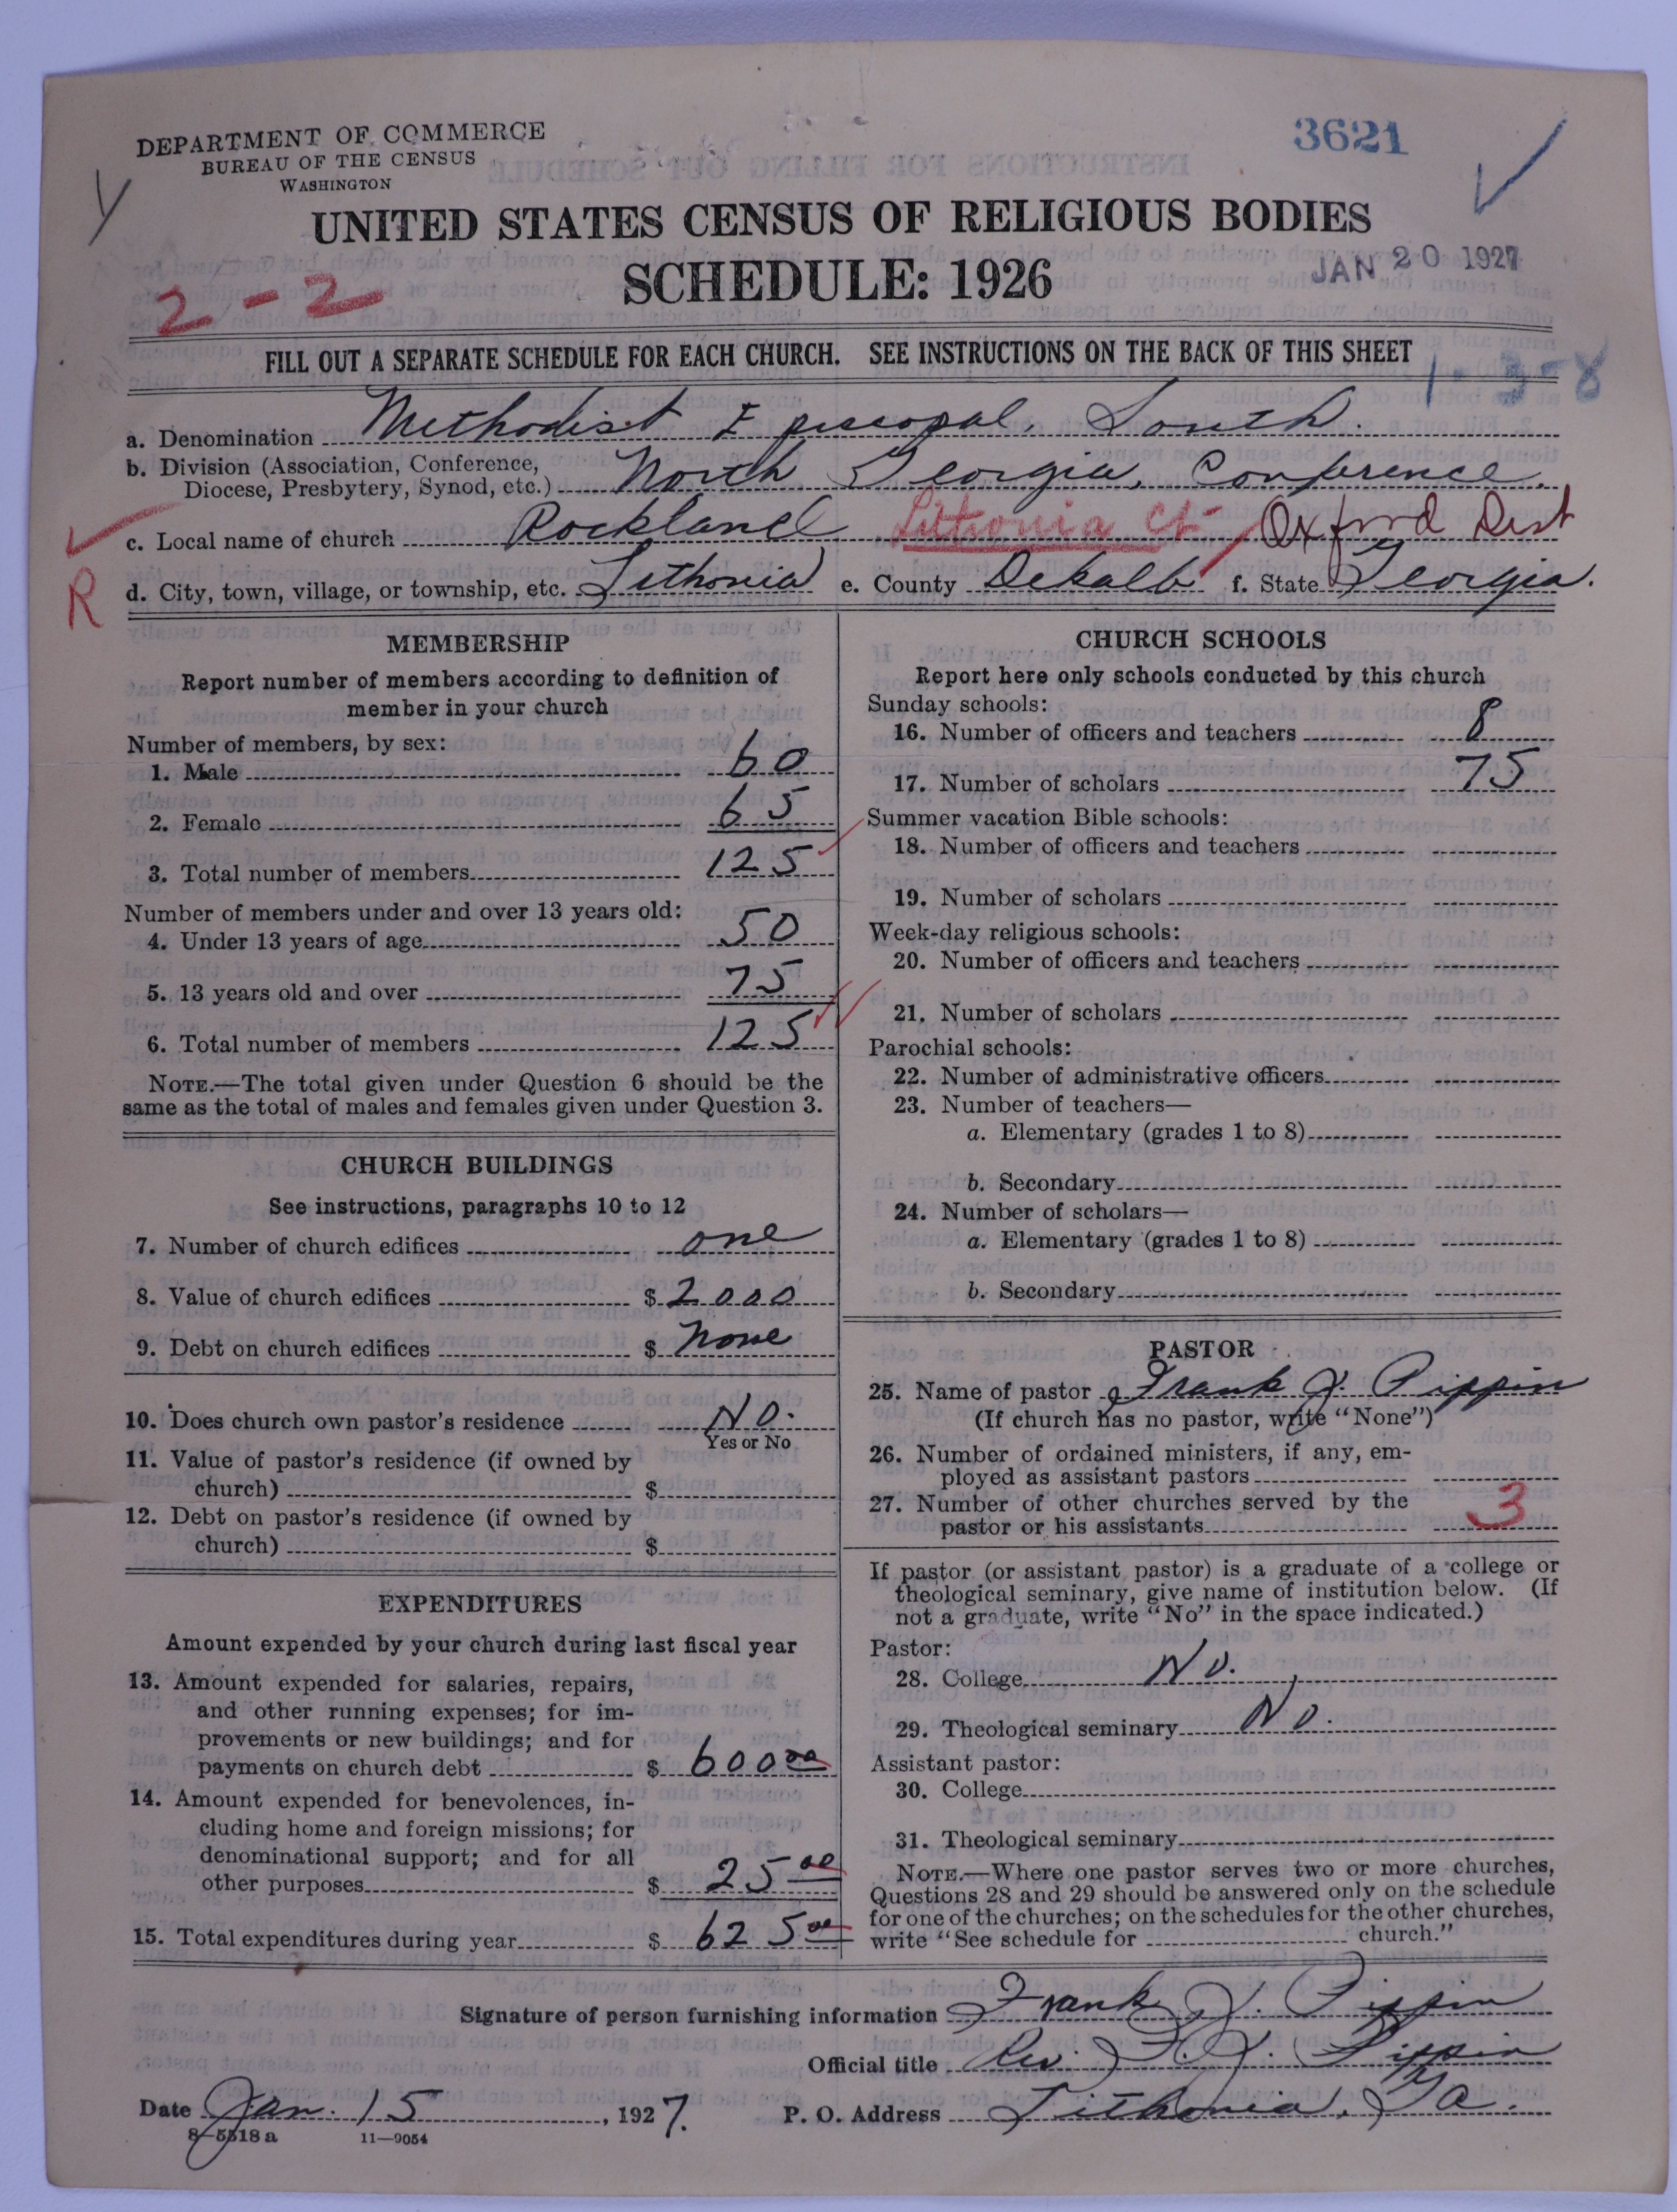 DEPARTMENT OF COMMERCE
BUREAU OF THE CENSUS
WASHINGTON
3621
UNITED STATES CENSUS OF RELIGIOUS BODIES
SCHEDULE: 1926
JAN 20 1927
2-2
FILL OUT A SEPARATE SCHEDULE FOR EACH CHURCH. SEE INSTRUCTIONS ON THE BACK OF THIS SHEET
1-3-8
a. Denomination Methodist Episcopal, South.
b. Division (Association, Conference, Diocese, Presbytery, Synod, etc.) North Georgia, Conference.
c. Local name of church Rockland Lithonia Ct- Oxford Dist
R
d. City, town, village, or township, etc. Lithonia e. County Dekalb f. State Georgia.
MEMBERSHIP
Report number of members according to definition of
member in your church
Number of members, by sex:
1. Male 60
2. Female 65
3. Total number of members 125
Number of members under and over 13 years old:
4. Under 13 years of age 50
5. 13 years old and over 75
6. Total number of members 125
NOTE.—The total given under Question 6 should be the
same as the total of males and females given under Question 3.
CHURCH BUILDINGS
See instructions, paragraphs 10 to 12
7. Number of church edifices one
8. Value of church edifices $ 2000
9. Debt on church edifices $ None
10. Does church own pastor's residence No.
Yes or No
11. Value of pastor's residence (if owned by
church) $
12. Debt on pastor's residence (if owned by
church) $
EXPENDITURES
Amount expended by your church during last fiscal year
13. Amount expended for salaries, repairs,
and other running expenses; for im-
provements or new buildings; and for
payments on church debt $ 600 00
14. Amount expended for benevolences, in-
cluding home and foreign missions; for
denominational support; and for all
other purposes $ 25 00
15. Total expenditures during year $ 625 00
CHURCH SCHOOLS
Report here only schools conducted by this church
Sunday schools:
16. Number of officers and teachers 8
17. Number of scholars 75
Summer vacation Bible schools:
18. Number of officers and teachers
19. Number of scholars
Week-day religious schools:
20. Number of officers and teachers
21. Number of scholars
Parochial schools:
22. Number of administrative officers
23. Number of teachers—
a. Elementary (grades 1 to 8)
b. Secondary
24. Number of scholars—
a. Elementary (grades 1 to 8)
b. Secondary
PASTOR
25. Name of pastor Frank J. Pippin
(If church has no pastor, write "None")
26. Number of ordained ministers, if any, em-
ployed as assistant pastors
27. Number of other churches served by the
pastor or his assistants 3
If pastor (or assistant pastor) is a graduate of a college or
theological seminary, give name of institution below. (If
not a graduate, write "No" in the space indicated.)
Pastor:
28. College No.
29. Theological seminary No.
Assistant pastor:
30. College
31. Theological seminary
NOTE.—Where one pastor serves two or more churches,
Questions 28 and 29 should be answered only on the schedule
for one of the churches; on the schedules for the other churches,
write "See schedule for church."
Signature of person furnishing information Frank J. Pippin
Official title Rev. F. J. Pippin
Date Jan. 15, 1927. P. O. Address Lithonia, Ga.
8-5518 a 11-9054